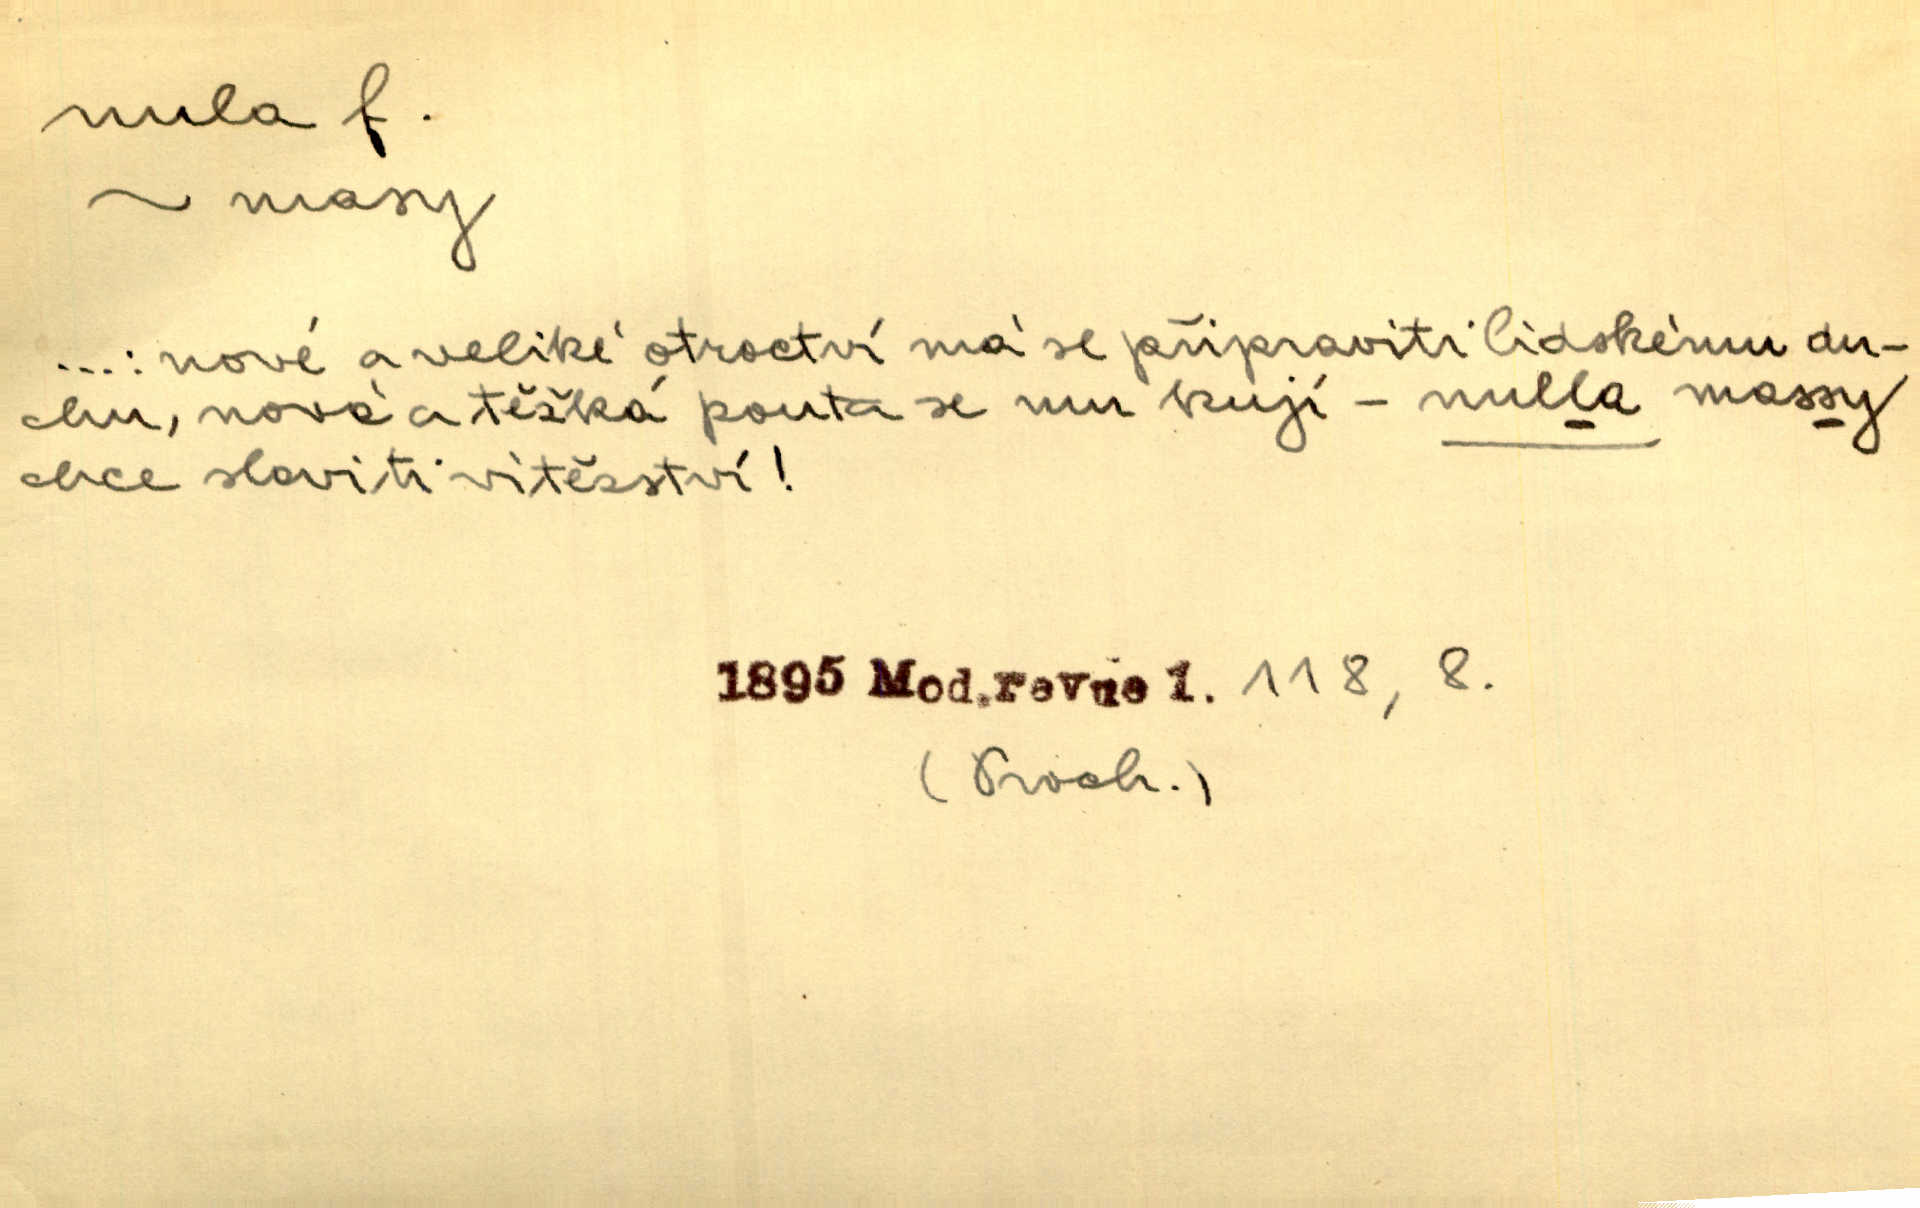 nula f.
~ masy
...: nové a veliké otroctví má se připraviti lidskému du-
chu, nová a těžká pouta se mu kují - nulla massy
chce slaviti vítězství!
1895 Mod.revue 1. 118, 8.
(Proch.)